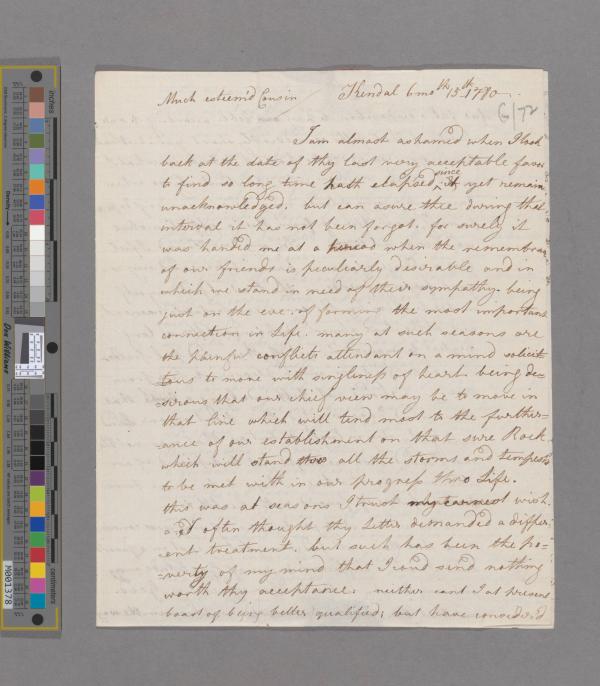 Much esteem'd Cousin Kendal 6 mo^th 15^th 1780
6/72
I am almost ashamed when I look
back at the date of thy last very acceptable favor
to find so long time hath elapsed, since it yet remain
unacknowledged. but can asure thee during this
interval it has not been forgot. for surely it
was handed me at a period when the remembran
of our friends is peculiarly desirable and in
which we stand in need of their sympathy. being
just on the eve of forming the most important
connection in Life. many at such seasons are
the painful conflicts attendant on a mind solicit
tous to move with singleness of heart. being de=
sirous that our chief view may be to move in
that line which will tend most to the further=
ance of our establishment on that sure Rock
which will stand thro all the storms and tempests
to be met with in our progress thro Life.
this was at seasons I trust my earnest wish.
and often thought thy Letter demanded a differ
ent treatment. but such has been the po=
verty of my mind that I coud send nothing
worth thy acceptance. neither cant I at present
boast of being better qualified; but have consider'd
inches
centimeters
Don Williams
M001378